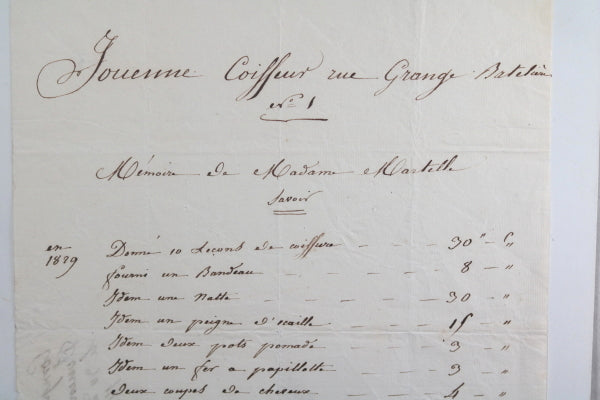 Jouenne Coiffeur rue Grange Batelière
N.º 1
Mémoire de Madame Martelle
Savoir
en 1829
Donné 10 Leçons de coiffure — — — 30 " — "
fourni un Bandeau — — — — 8 — "
Idem une Natte — — — — 30 — "
Idem un peigne d'écaille — — — 15 — "
Idem deux pots pomade — — — 3 — "
Idem un fer a papillotte — — — 3 — "
deux coupes de cheveux — — — 4 — "